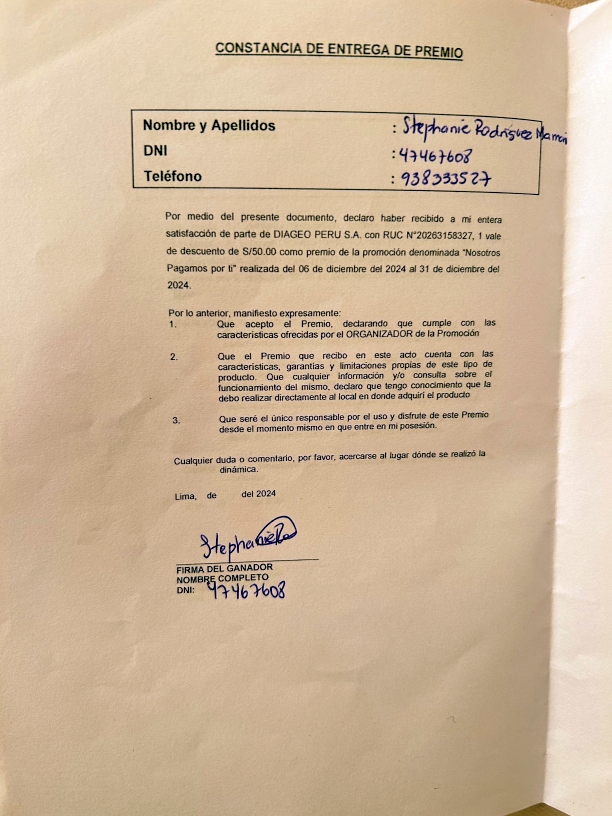 CONSTANCIA DE ENTREGA DE PREMIO
Nombre y Apellidos : Stephanie Rodríguez
DNI : 47467608
Teléfono : 938333527
Por medio del presente documento, declaro haber recibido a mi entera
satisfacción de parte de DIAGEO PERU S.A. con RUC N°20263158327, 1 vale
de descuento de S/50.00 como premio de la promoción denominada "Nosotros
Pagamos por ti" realizada del 06 de diciembre del 2024 al 31 de diciembre del
2024.
Por lo anterior, manifiesto expresamente:
1. Que acepto el Premio, declarando que cumple con las
características ofrecidas por el ORGANIZADOR de la Promoción
2. Que el Premio que recibo en este acto cuenta con las
características, garantías y limitaciones propias de este tipo de
producto. Que cualquier información y/o consulta sobre el
funcionamiento del mismo, declaro que tengo conocimiento que la
debo realizar directamente al local en donde adquirí el producto
3. Que seré el único responsable por el uso y disfrute de este Premio
desde el momento mismo en que entre en mi posesión.
Cualquier duda o comentario, por favor, acercarse al lugar dónde se realizó la
dinámica.
Lima, de del 2024
Stephanie
FIRMA DEL GANADOR
NOMBRE COMPLETO
DNI: 47467608